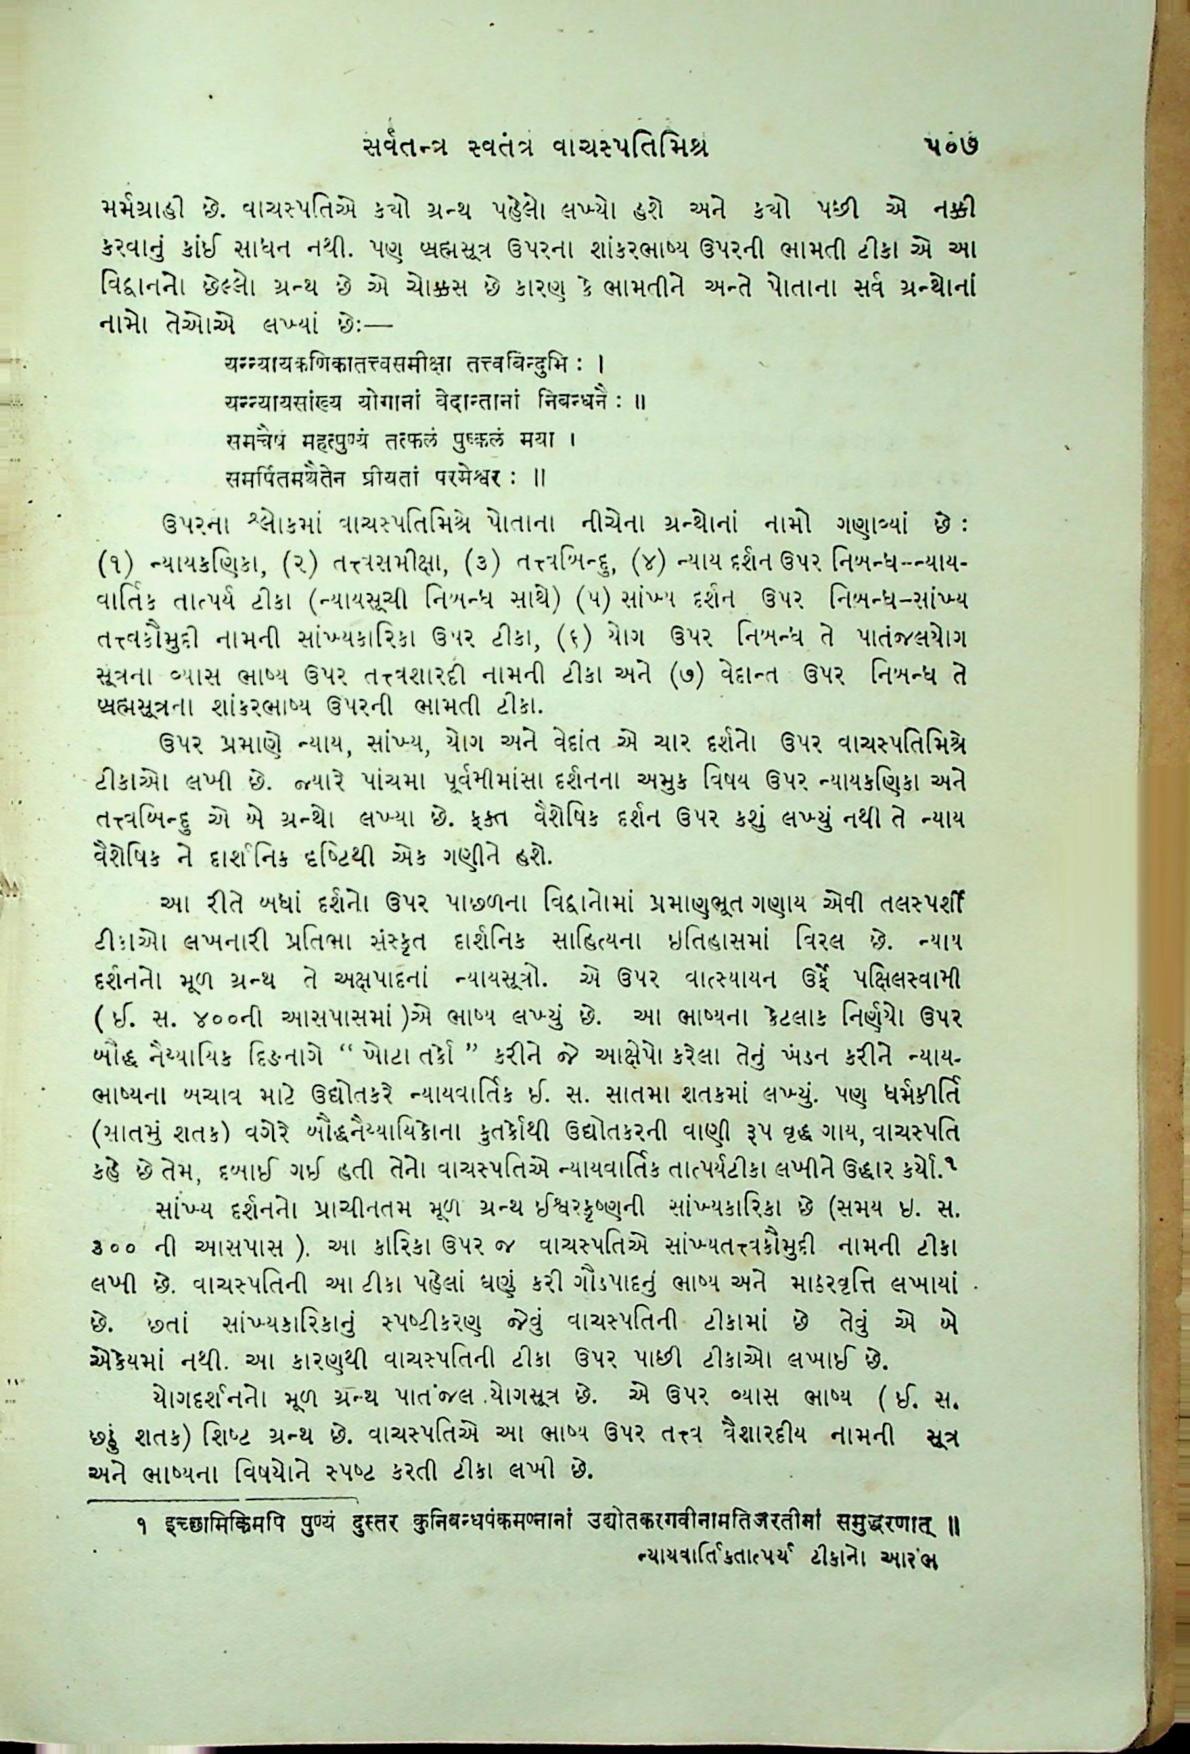 સર્વતન્ત્ર સ્વતંત્ર વાચસ્પતિમિશ્ર ૫૦૭
મર્મગ્રાહી છે. વાચસ્પતિએ કયો ગ્રન્થ પહેલો લખ્યો હશે અને કયો પછી એ નક્કી
કરવાનું કાંઈ સાધન નથી. પણ બ્રહ્મસૂત્ર ઉપરના શાંકરભાષ્ય ઉપરની ભામતી ટીકા એ આ
વિદ્વાનનો છેલ્લો ગ્રન્થ છે એ ચોક્કસ છે કારણ કે ભામતીને અન્તે પોતાના સર્વ ગ્રન્થોનાં
નામો તેઓએ લખ્યાં છેઃ—
यन्न्यायकणिकातत्त्वसमीक्षा तत्त्वबिन्दुभिः ।
यन्न्यायसांख्य योगानां वेदान्तानां निबन्धनैः ॥
समचैषं महत्पुण्यं तत्फलं पुष्कलं मया ।
समर्पितमथैतेन प्रीयतां परमेश्वरः ॥
ઉપરના શ્લોકમાં વાચસ્પતિમિશ્રે પોતાના નીચેના ગ્રન્થોનાં નામો ગણાવ્યાં છે :
(૧) ન્યાયકણિકા, (૨) તત્ત્વસમીક્ષા, (૩) તત્ત્વબિન્દુ, (૪) ન્યાય દર્શન ઉપર નિબન્ધ--ન્યાય-
વાર્તિક તાત્પર્ય ટીકા (ન્યાયસૂચી નિબન્ધ સાથે) (૫) સાંખ્ય દર્શન ઉપર નિબન્ધ–સાંખ્ય
તત્ત્વકૌમુદી નામની સાંખ્યકારિકા ઉપર ટીકા, (૬) યોગ ઉપર નિબન્ધ તે પાતંજલયોગ
સૂત્રના વ્યાસ ભાષ્ય ઉપર તત્ત્વશારદી નામની ટીકા અને (૭) વેદાન્ત ઉપર નિબન્ધ તે
બ્રહ્મસૂત્રના શાંકરભાષ્ય ઉપરની ભામતી ટીકા.
ઉપર પ્રમાણે ન્યાય, સાંખ્ય, યોગ અને વેદાંત એ ચાર દર્શનો ઉપર વાચસ્પતિમિશ્રે
ટીકાઓ લખી છે. જ્યારે પાંચમા પૂર્વમીમાંસા દર્શનના અમુક વિષય ઉપર ન્યાયકણિકા અને
તત્ત્વબિન્દુ એ બે ગ્રન્થો લખ્યા છે. ફક્ત વૈશેષિક દર્શન ઉપર કશું લખ્યું નથી તે ન્યાય
વૈશેષિક ને દાર્શનિક દૃષ્ટિથી એક ગણીને હશે.
આ રીતે બધાં દર્શનો ઉપર પાછળના વિદ્વાનોમાં પ્રમાણભૂત ગણાય એવી તલસ્પર્શી
ટીકાઓ લખનારી પ્રતિભા સંસ્કૃત દાર્શનિક સાહિત્યના ઇતિહાસમાં વિરલ છે. ન્યાય
દર્શનનો મૂળ ગ્રન્થ તે અક્ષપાદનાં ન્યાયસૂત્રો. એ ઉપર વાત્સ્યાયન ઉર્ફે પક્ષિલસ્વામી
(ઈ. સ. ૪૦૦ની આસપાસમાં)એ ભાષ્ય લખ્યું છે. આ ભાષ્યના કેટલાક નિર્ણયો ઉપર
બૌદ્ધ નૈય્યાયિક દિઙનાગે “ખોટા તર્કો” કરીને જે આક્ષેપો કરેલા તેનું ખંડન કરીને ન્યાય-
ભાષ્યના બચાવ માટે ઉદ્યોતકરે ન્યાયવાર્તિક ઈ. સ. સાતમા શતકમાં લખ્યું. પણ ધર્મકીર્તિ
(સાતમું શતક) વગેરે બૌદ્ધનૈય્યાયિકોના કુતર્કોથી ઉદ્યોતકરની વાણી રૂપ વૃદ્ધ ગાય, વાચસ્પતિ
કહે છે તેમ, દબાઈ ગઈ હતી તેનો વાચસ્પતિએ ન્યાયવાર્તિક તાત્પર્યટીકા લખીને ઉદ્ધાર કર્યો.૧
સાંખ્ય દર્શનનો પ્રાચીનતમ મૂળ ગ્રન્થ ઈશ્વરકૃષ્ણની સાંખ્યકારિકા છે (સમય ઇ. સ.
૩૦૦ ની આસપાસ). આ કારિકા ઉપર જ વાચસ્પતિએ સાંખ્યતત્ત્વકૌમુદી નામની ટીકા
લખી છે. વાચસ્પતિની આ ટીકા પહેલાં ઘણું કરી ગૌડપાદનું ભાષ્ય અને માઠરવૃત્તિ લખાયાં
છે. છતાં સાંખ્યકારિકાનું સ્પષ્ટીકરણ જેવું વાચસ્પતિની ટીકામાં છે તેવું એ બે
એકેયમાં નથી. આ કારણથી વાચસ્પતિની ટીકા ઉપર પાછી ટીકાઓ લખાઈ છે.
યોગદર્શનનો મૂળ ગ્રન્થ પાતંજલ યોગસૂત્ર છે. એ ઉપર વ્યાસ ભાષ્ય (ઈ. સ.
છઠ્ઠું શતક) શિષ્ટ ગ્રન્થ છે. વાચસ્પતિએ આ ભાષ્ય ઉપર તત્ત્વ વૈશારદીય નામની સૂત્ર
અને ભાષ્યના વિષયોને સ્પષ્ટ કરતી ટીકા લખી છે.
१ इच्छामिकिमपि पुण्यं दुस्तर कुनिबन्धपंकमग्नानां उद्योतकरगवीनामतिजरतीनां समुद्धरणात् ॥
ન્યાયવાર્તિકતાત્પર્ય ટીકાનો આરંભ